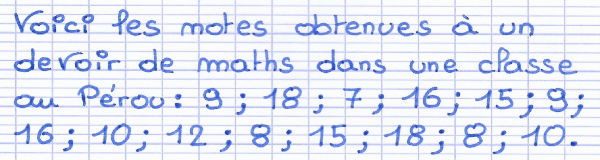 Voici les notes obtenues à un
devoir de maths dans une classe
au Pérou : 9 ; 18 ; 7 ; 16 ; 15 ; 9 ;
16 ; 10 ; 12 ; 8 ; 15 ; 18 ; 8 ; 10.